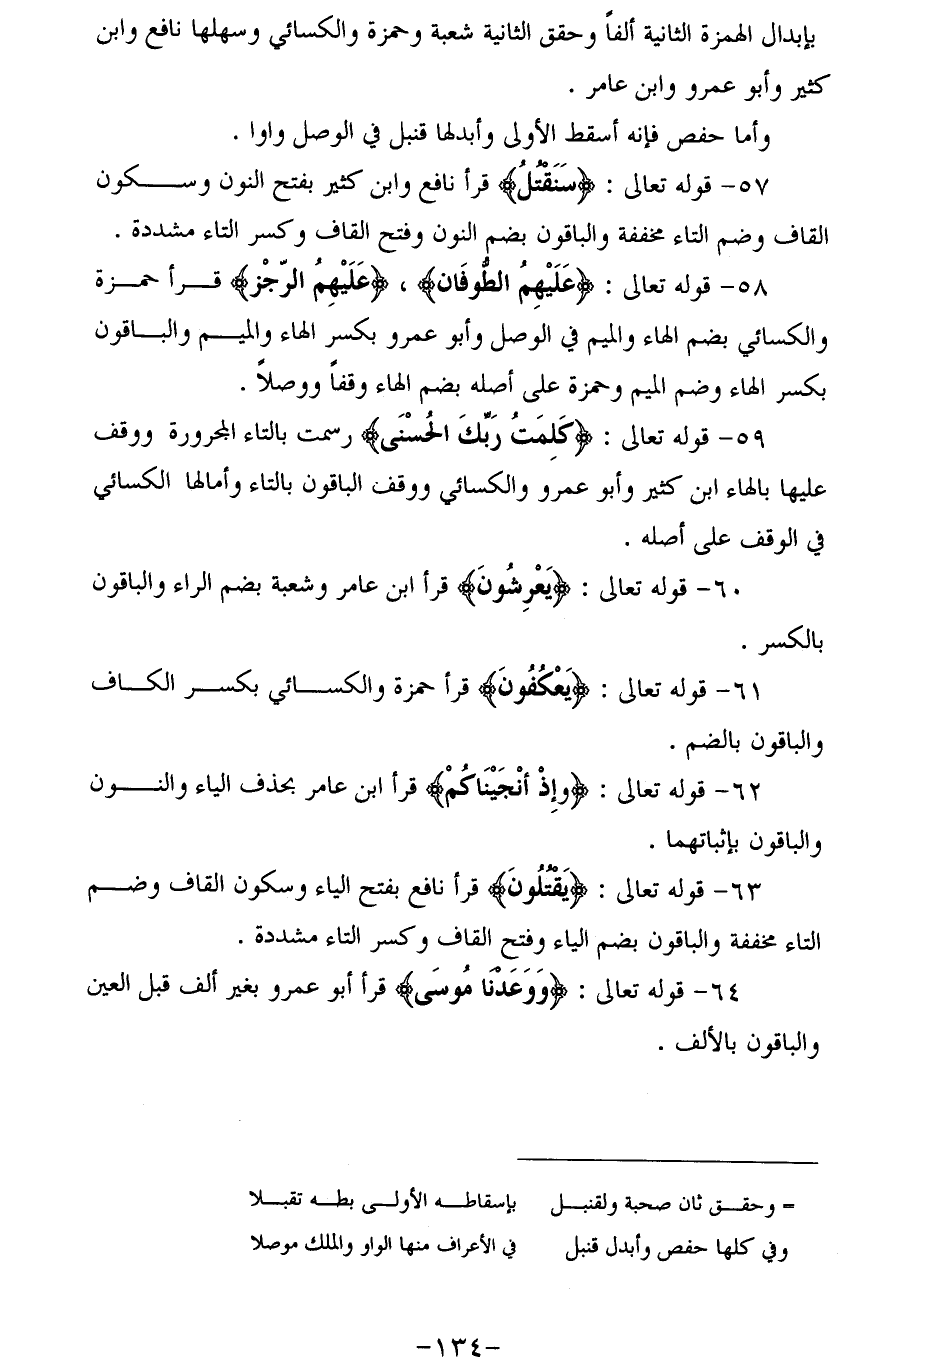 بإبدال الهمزة الثانية ألفاً وحقق الثانية شعبة وحمزة والكسائي وسهلها نافع وابن
كثير وأبو عمرو وابن عامر .
وأما حفص فإنه أسقط الأولى وأبدلها قنبل في الوصل واوا .
٥٧- قوله تعالى : ﴿سَنَقْتُلُ﴾ قرأ نافع وابن كثير بفتح النون وسكون
القاف وضم التاء مخففة والباقون بضم النون وفتح القاف وكسر التاء مشددة .
٥٨- قوله تعالى : ﴿عَلَيْهِمُ الطُّوفَان﴾ ، ﴿عَلَيْهِمُ الرِّجْز﴾ قرأ حمزة
والكسائي بضم الهاء والميم في الوصل وأبو عمرو بكسر الهاء والميم والباقون
بكسر الهاء وضم الميم وحمزة على أصله بضم الهاء وقفاً ووصلاً .
٥٩- قوله تعالى : ﴿كَلِمَتُ رَبِّكَ الحُسْنَى﴾ رسمت بالتاء المجرورة ووقف
عليها بالهاء ابن كثير وأبو عمرو والكسائي ووقف الباقون بالتاء وأمالها الكسائي
في الوقف على أصله .
٦٠- قوله تعالى : ﴿يَعْرِشُونَ﴾ قرأ ابن عامر وشعبة بضم الراء والباقون
بالكسر .
٦١- قوله تعالى : ﴿يَعْكُفُونَ﴾ قرأ حمزة والكسائي بكسر الكاف
والباقون بالضم .
٦٢- قوله تعالى : ﴿وإِذْ أَنْجَيْنَاكُمْ﴾ قرأ ابن عامر بحذف الياء والنون
والباقون بإثباتهما .
٦٣- قوله تعالى : ﴿يَقْتُلُونَ﴾ قرأ نافع بفتح الياء وسكون القاف وضم
التاء مخففة والباقون بضم الياء وفتح القاف وكسر التاء مشددة .
٦٤- قوله تعالى : ﴿وَوَعَدْنَا مُوسَى﴾ قرأ أبو عمرو بغير ألف قبل العين
والباقون بالألف .
= وحقق ثان صحبة ولقنبل بإسقاطه الأولى بطه تقبلا
وفي كلها حفص وأبدل قنبل في الأعراف منها الواو والملك موصلا
-١٣٤-